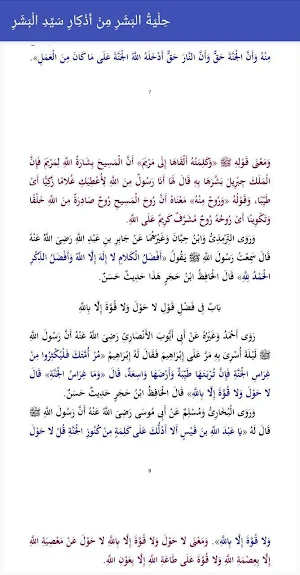 حِلْيَةُ الْبَشَرِ مِنْ أَذْكَارِ سَيِّدِ الْبَشَرِ
مِنْهُ وَأَنَّ الْجَنَّةَ حَقٌّ وَأَنَّ النَّارَ حَقٌّ أَدْخَلَهُ اللَّهُ الْجَنَّةَ عَلَى مَا كَانَ مِنَ الْعَمَلِ».
٧
وَمَعْنَى قَوْلِهِ ﷺ «وَكَلِمَتُهُ أَلْقَاهَا إِلَى مَرْيَمَ» أَنَّ الْمَسِيحَ بِشَارَةُ اللَّهِ لِمَرْيَمَ فَإِنَّ
الْمَلَكَ جِبْرِيلَ بَشَّرَهَا بِهِ قَالَ لَهَا أَنَا رَسُولٌ مِنَ اللَّهِ لِأُعْطِيَكِ غُلَامًا زَكِيًّا أَىْ
طَيِّبًا، وَقَوْلُهُ «وَرُوحٌ مِنْهُ» مَعْنَاهُ أَنَّ رُوحَ الْمَسِيحِ رُوحٌ صَادِرَةٌ مِنَ اللَّهِ خَلْقًا
وَتَكْوِينًا أَىْ رُوحُهُ رُوحٌ مُشَرَّفٌ كَرِيمٌ عَلَى اللَّهِ.
وَرَوَى التِّرْمِذِىُّ وَابْنُ حِبَّانَ وَغَيْرُهُمَا عَنْ جَابِرِ بنِ عَبْدِ اللَّهِ رَضِىَ اللَّهُ عَنْهُ
قَالَ سَمِعْتُ رَسُولَ اللَّهِ ﷺ يَقُولُ «أَفْضَلُ الْكَلَامِ لَا إِلَهَ إِلَّا اللَّهُ وَأَفْضَلُ الذِّكْرِ
الْحَمْدُ لِلَّهِ» قَالَ الْحَافِظُ ابْنُ حَجَرٍ هَذَا حَدِيثٌ حَسَنٌ.
بَابٌ فِى فَضْلِ قَوْلِ لَا حَوْلَ وَلَا قُوَّةَ إِلَّا بِاللَّهِ
رَوَى أَحْمَدُ وَغَيْرُهُ عَنْ أَبِى أَيُّوبَ الْأَنْصَارِىِّ رَضِىَ اللَّهُ عَنْهُ أَنَّ رَسُولَ اللَّهِ
ﷺ لَيْلَةَ أُسْرِىَ بِهِ مَرَّ عَلَى إِبْرَاهِيمَ فَقَالَ لَهُ إِبْرَاهِيمُ «مُرْ أُمَّتَكَ فَلْيُكْثِرُوا مِنْ
غِرَاسِ الْجَنَّةِ فَإِنَّ تُرْبَتَهَا طَيِّبَةٌ وَأَرْضَهَا وَاسِعَةٌ، قَالَ «وَمَا غِرَاسُ الْجَنَّةِ» قَالَ لَا
حَوْلَ وَلَا قُوَّةَ إِلَّا بِاللَّهِ» قَالَ الْحَافِظُ ابْنُ حَجَرٍ حَدِيثٌ حَسَنٌ.
وَرَوَى الْبُخَارِىُّ وَمُسْلِمٌ عَنْ أَبِى مُوسَى رَضِىَ اللَّهُ عَنْهُ أَنَّ رَسُولَ اللَّهِ ﷺ
قَالَ لَهُ «يَا عَبْدَ اللَّهِ بنَ قَيْسٍ أَلَا أَدُلُّكَ عَلَى كَلِمَةٍ مِنْ كُنُوزِ الْجَنَّةِ قُلْ لَا حَوْلَ
٨
وَلَا قُوَّةَ إِلَّا بِاللَّهِ». وَمَعْنَى لَا حَوْلَ وَلَا قُوَّةَ إِلَّا بِاللَّهِ لَا حَوْلَ عَنْ مَعْصِيَةِ اللَّهِ
إِلَّا بِعِصْمَةِ اللَّهِ وَلَا قُوَّةَ عَلَى طَاعَةِ اللَّهِ إِلَّا بِعَوْنِ اللَّهِ.